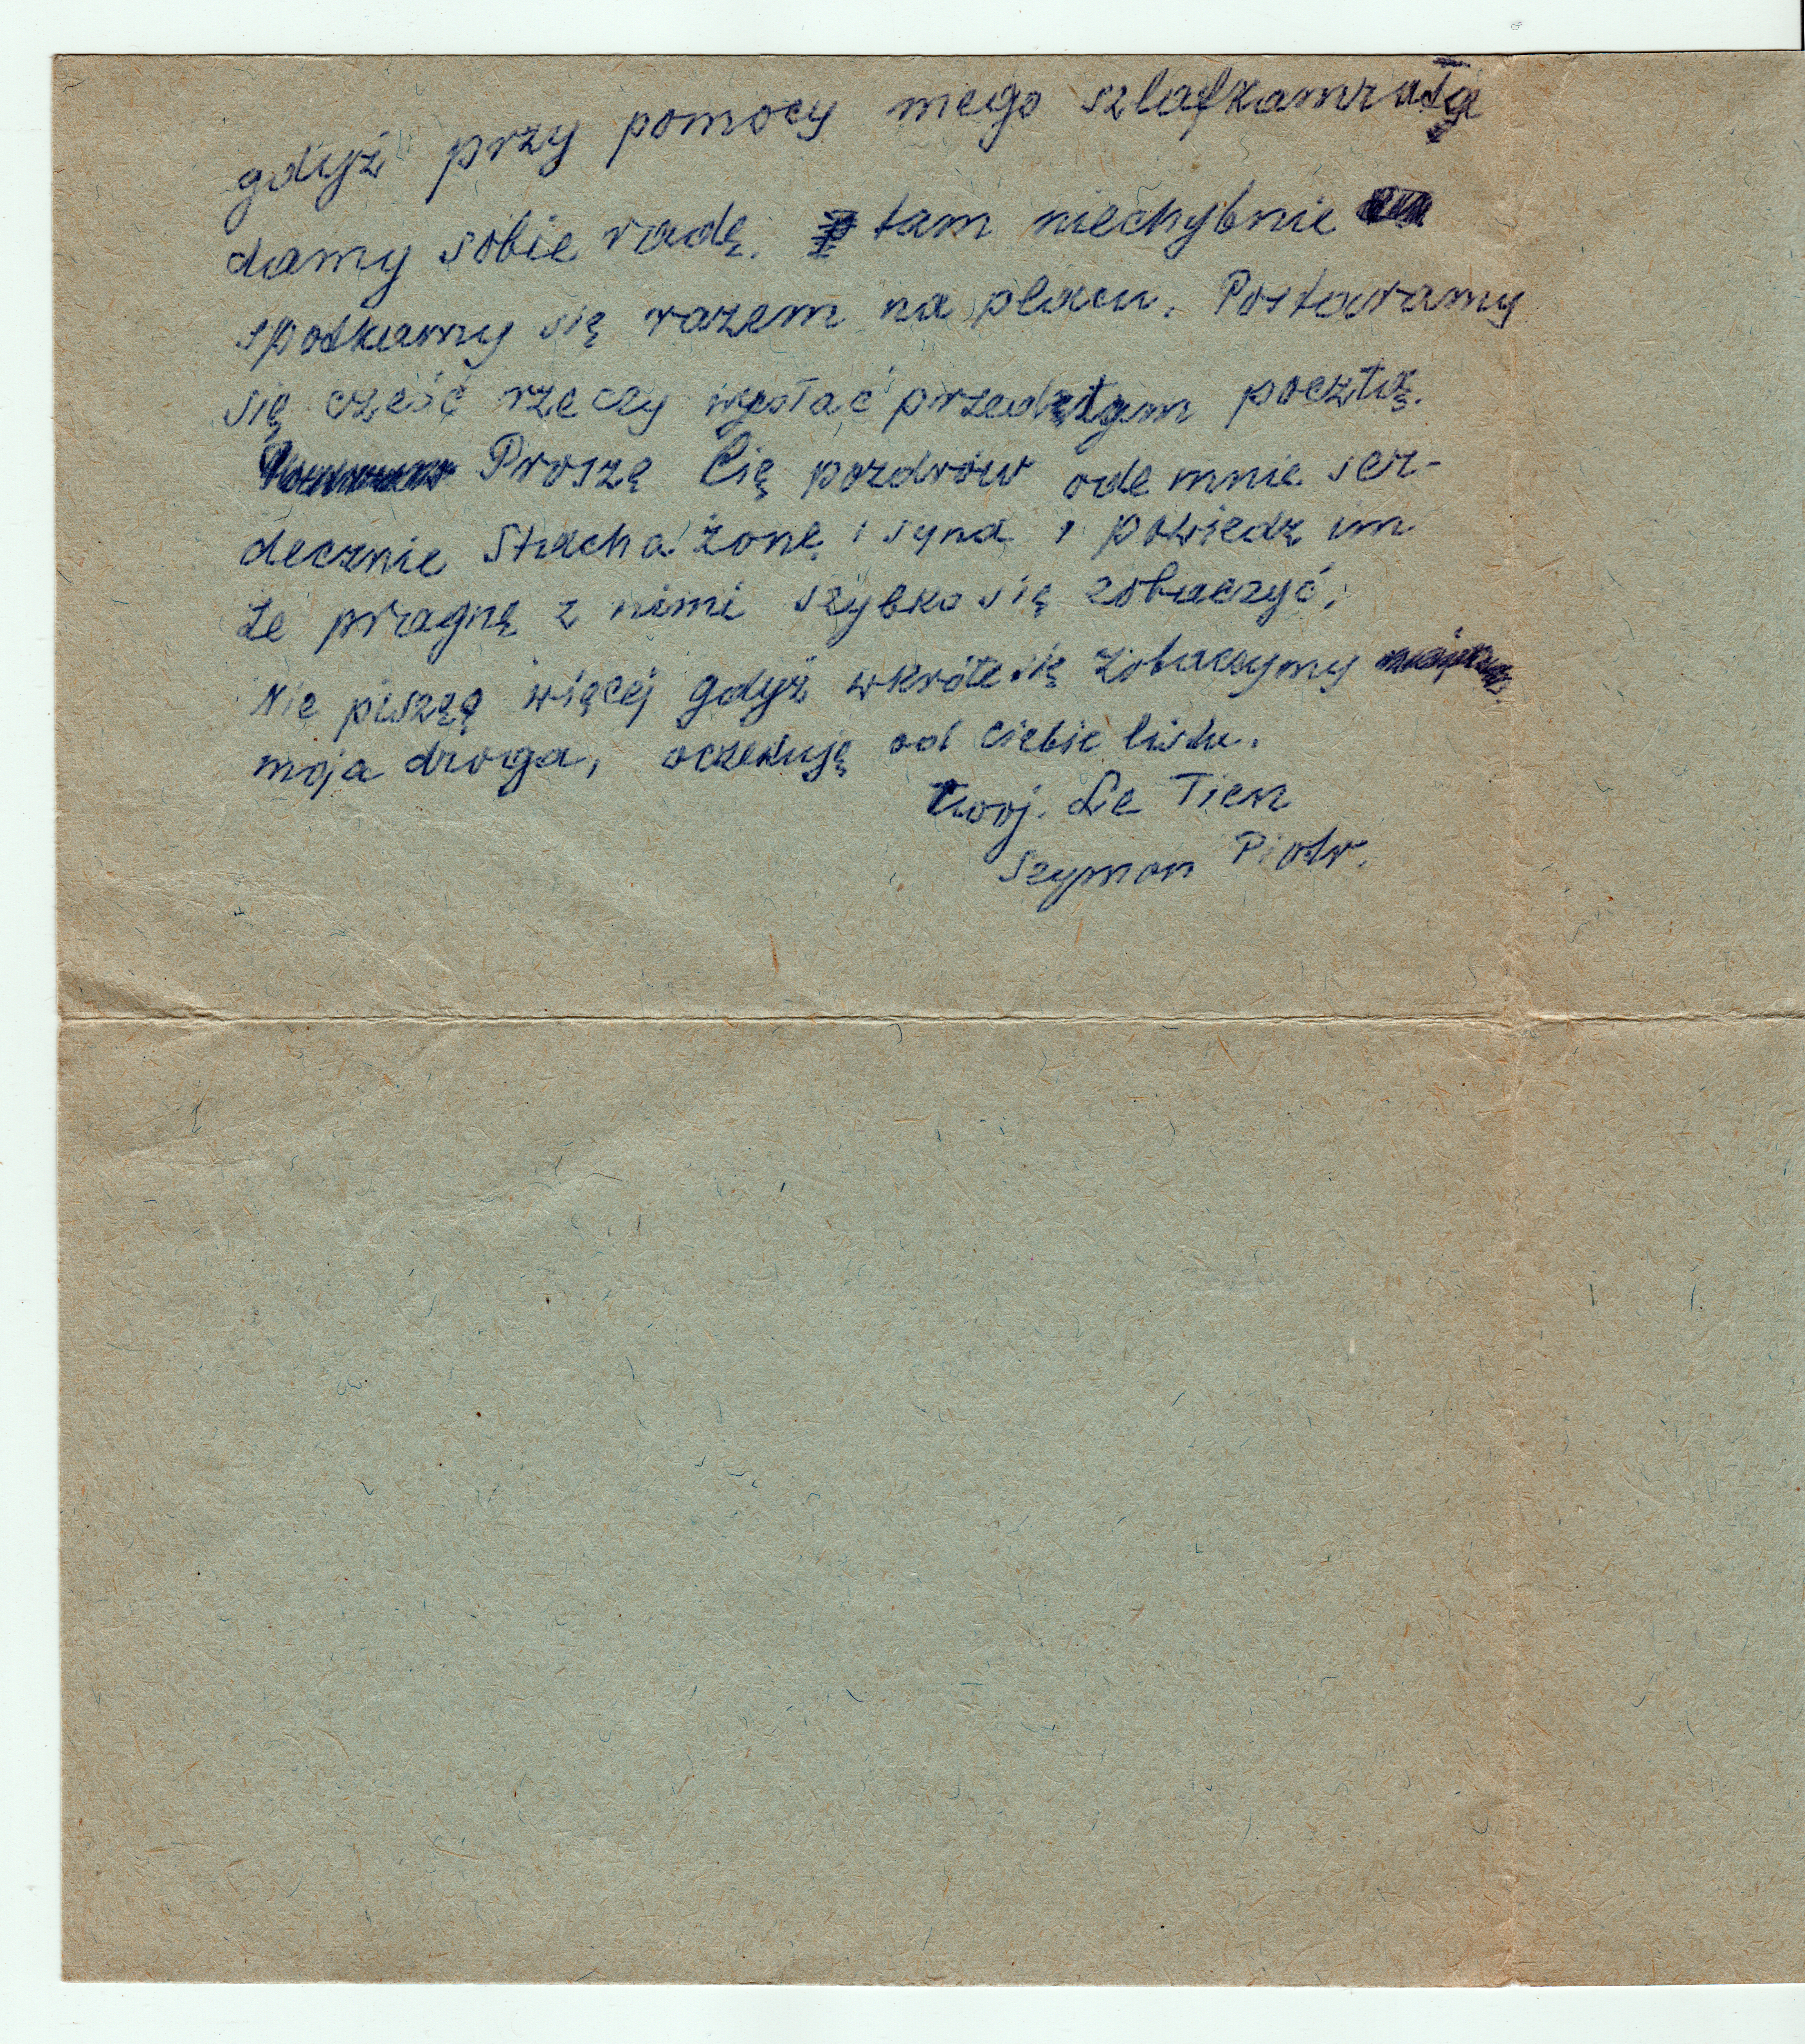 gdyż przy pomocy mego szlafkamrata
damy sobie radę. tam niechybnie
spotkamy się razem na placu. Postaramy
się cześć rzeczy wysłać przedtym pocztą.
Proszę Cię pozdrów ode mnie ser-
decznie Stacha żonę i syna i powiedz im
że pragnę z nimi szybko się zobaczyć.
Nie piszę więcej gdyż wkrótce się zobaczymy
moja droga, oczekuję od Ciebie listu.
Twój. Le Tien
Szymon Piotr.